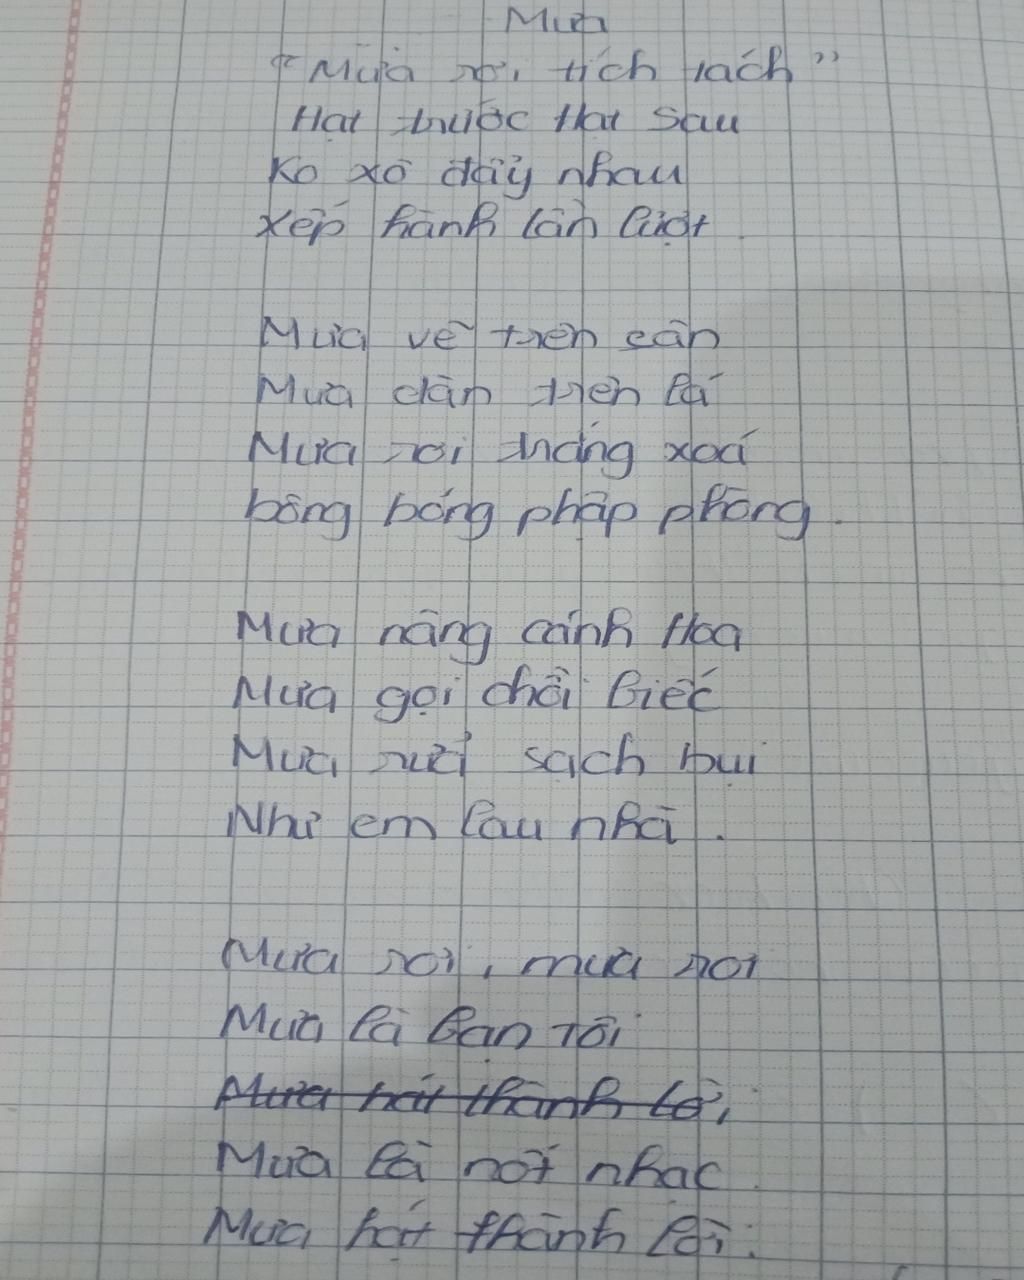 Mưa
"Mưa rơi tích tách"
Hạt trước Hạt sau
Ko xô đẩy nhau
Xếp hành lần lượt.
Mưa vẽ trên sân
Mưa dàn trên lá
Mưa rơi trắng xoá
bông bóng phập phồng.
Mưa nâng cánh Hoa
Mưa gọi chồi biếc
Mưa rửa sạch bụi
Như em lau nhà.
Mưa rơi, mưa rơi
Mưa là bạn tôi
Mưa hát thành lời
Mưa là nốt nhạc.
Mưa hát thành lời.